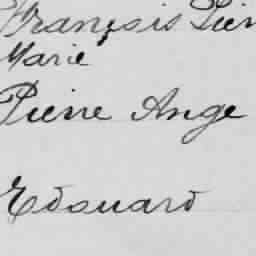 François Pier
Marie
Pierre Ange
Edouard